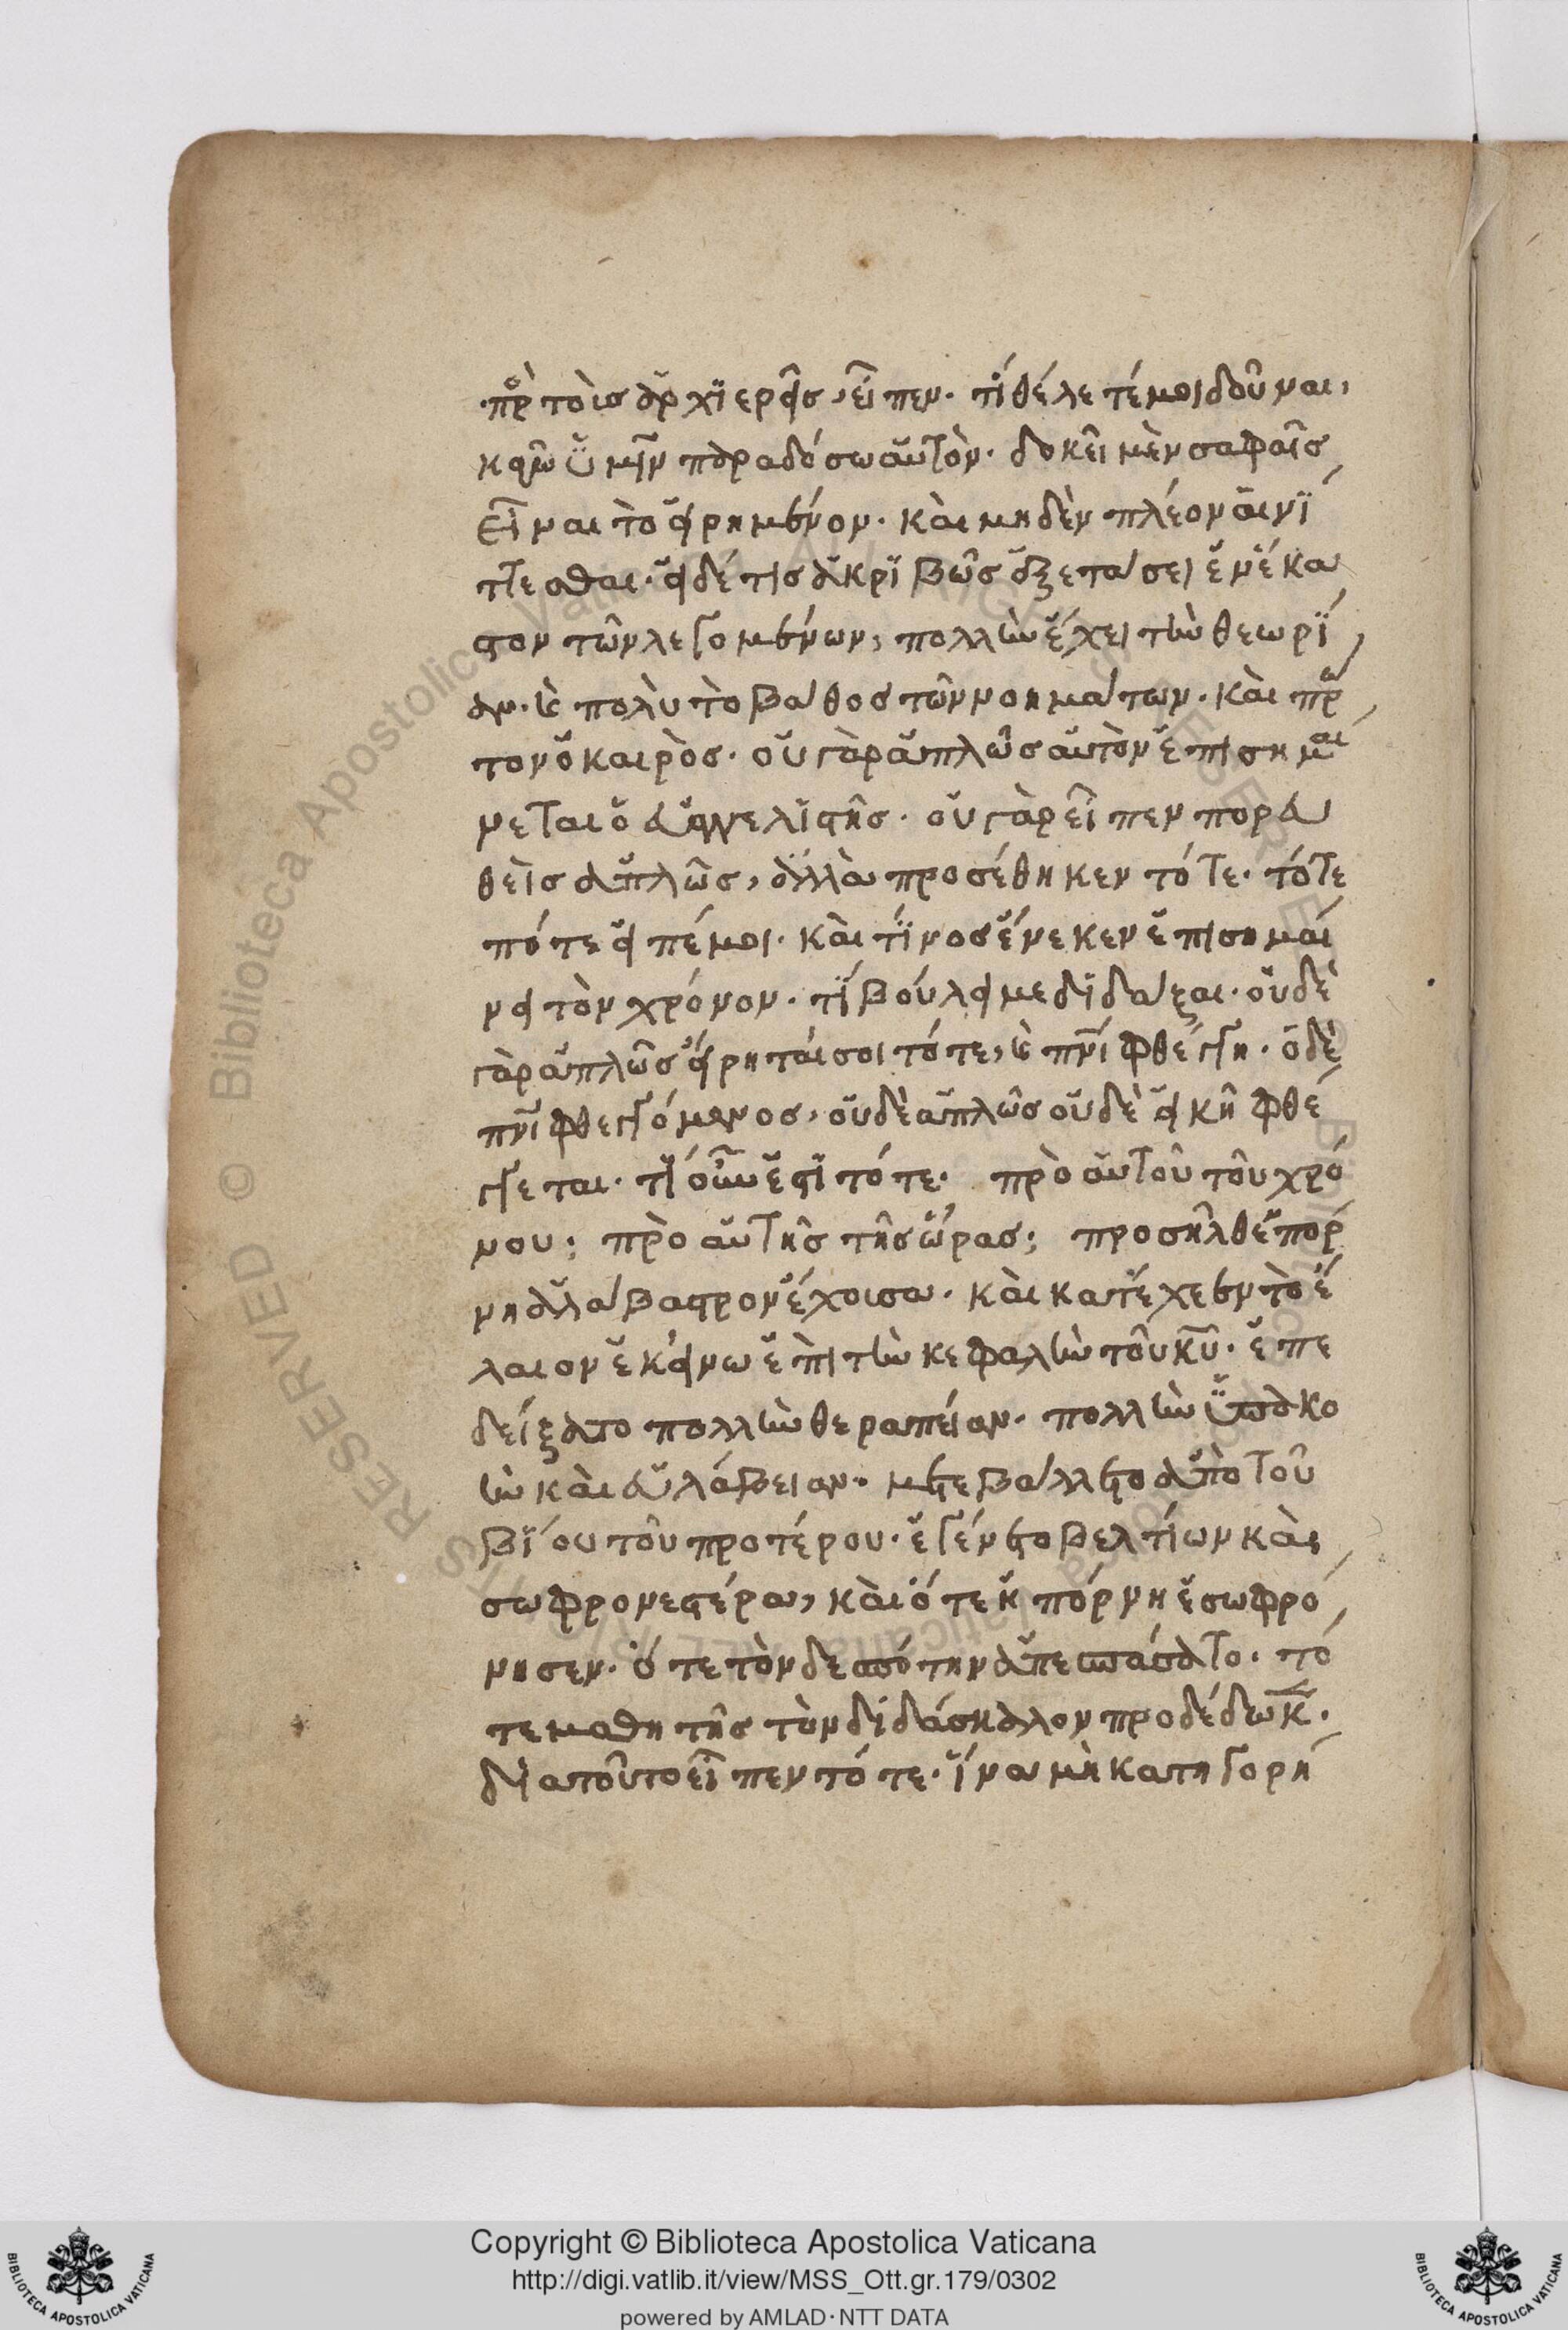 πρὸ τοῖς ἀρχϊερεῖς, εἶπεν. τί θέλετέ μοι δοῦναι,
κἀγὼ ὑμῖν παραδώσω αὐτὸν. δοκεῖ μὲν σαφαῖς
εἶναι τὸ εἰρημένον. καὶ μηδὲν πλέον αἰνί
ττεσθαι. εἰ δέ τις ἀκρϊβῶς ἐξετάσει ἓν ἕκα
στον τῶν λεγομένων, πολλὴν ἔχει τὴν θεωρΐ
αν. καὶ πολὺ τὸ βάθος τῶν νοημάτων. καὶ πρῶ
τον ὁ καιρὸς. οὐ γὰρ ἁπλῶς αὐτὸν ἐπισημαί
νεται ὁ εὐαγγελϊστῆς. οὐ γὰρ εἶπεν πορευ
θεὶς ἁπλῶς, ἀλλὰ προσέθηκεν τότε. τότε
πότε εἰπέ μοι. καὶ τίνος ἕνεκεν ἐπισημαί
νει τὸν χρόνον. τί βούλει με διδάξαι. οὐδὲ
γὰρ ἁπλῶς εἴρηταί σοι τότε, καὶ πνι φθέγγη. ὁ δὲ
πνι φθεγγόμενος, οὐδὲ ἁπλῶς οὐδὲ εἰκῆ φθέ
γγεται. τί οὖν ἐστὶ τότε. πρὸ αὐτοῦ τοῦ χρό
νου; πρὸ αὐτῆς τῆς ὥρας; προσῆλθε πόρ
νη ἀλάβαστρον ἔχουσα. καὶ κατέχεεν τὸ ἔ
λαιον ἐκείνω ἐπὶ τὴν κεφαλὴν τοῦ κυ. ἐπε
δείξατο πολλὴν θεραπείαν. πολλὴν ὑπακο
ὴν καὶ εὐλάβειαν. μετεβάλλετο ἀπὸ τοῦ
βΐου τοῦ προτέρου. ἐγένετο βελτίων καὶ
σωφρονεστέρα, καὶ ὅτε ἡ πόρνη ἐσωφρό
νησεν. ὅτε τὸν δεσπότην ἀπεσπάσατο. τό
τε μαθητῆς τὸν διδάσκαλον προδέδωκ.
διατοῦτο εἶπεν τότε. ἵνα μὴ κατηγορή
Copyright © Biblioteca Apostolica Vaticana
http://digi.vatlib.it/view/MSS_Ott.gr.179/0302
powered by AMLAD · NTT DATA